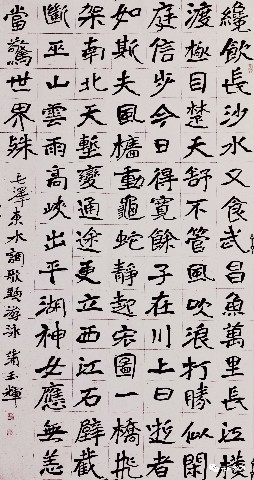 纔飲長沙水又食武昌魚萬里長江橫
渡極目楚天舒不管風吹浪打勝似閑
庭信步今日得寬餘子在川上曰逝者
如斯夫風檣動龜蛇靜起宏圖一橋飛
架南北天塹變通途更立西江石壁截
斷巫山雲雨高峽出平湖神女應無恙
當驚世界殊 毛澤東水調歌頭游泳 蕭玉輝